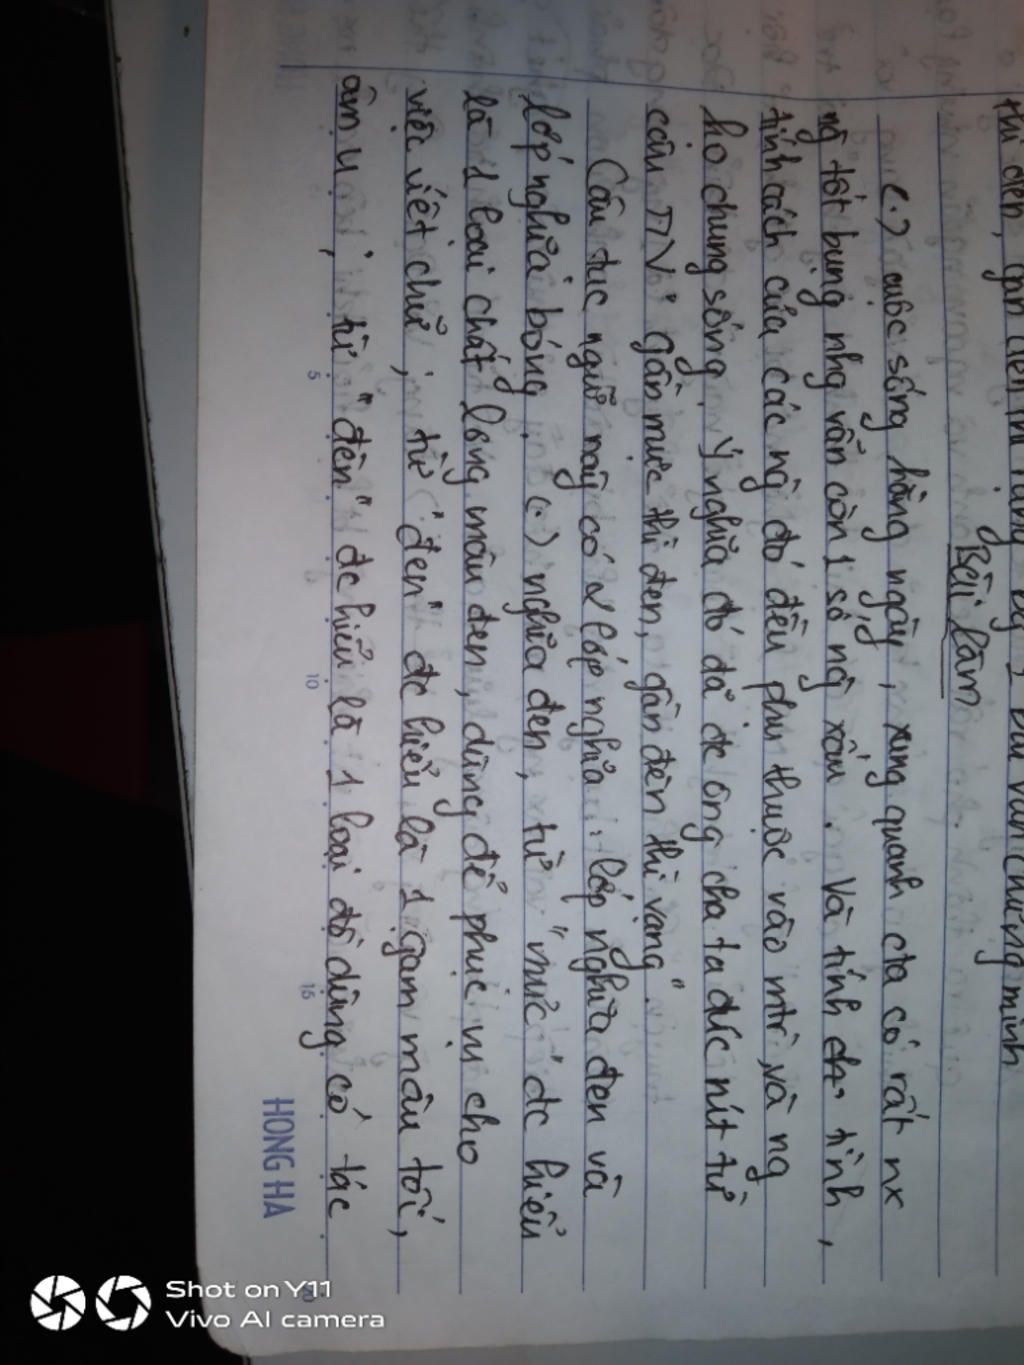 thì đen, gần đèn thì rạng bằng 1 bài văn chứng minh
Bài làm
(.) cuộc sống hằng ngày, xung quanh cta có rất nx
ng tốt bụng nhg vẫn còn 1 số ng xấu. Và tính tình,
tính cách của các ng đó đều phụ thuộc vào mtr và ng
họ chung sống. Ý nghĩa đó đã đc ông cha ta đúc nít từ
câu TN "gần mực thì đen, gần đèn thì rạng".
Câu tục ngữ này có 2 lớp nghĩa: lớp nghĩa đen và
lớp nghĩa bóng. (.) nghĩa đen, từ "mực" đc hiểu
là 1 loại chất lỏng màu đen, dùng để phục vụ cho
việc viết chữ; từ "đen" đc hiểu là 1 gam màu tối,
âm u; từ "đèn" đc hiểu là 1 loại đồ dùng có tác
5
10
15
20
HONG HA
Shot on Y11
Vivo AI camera